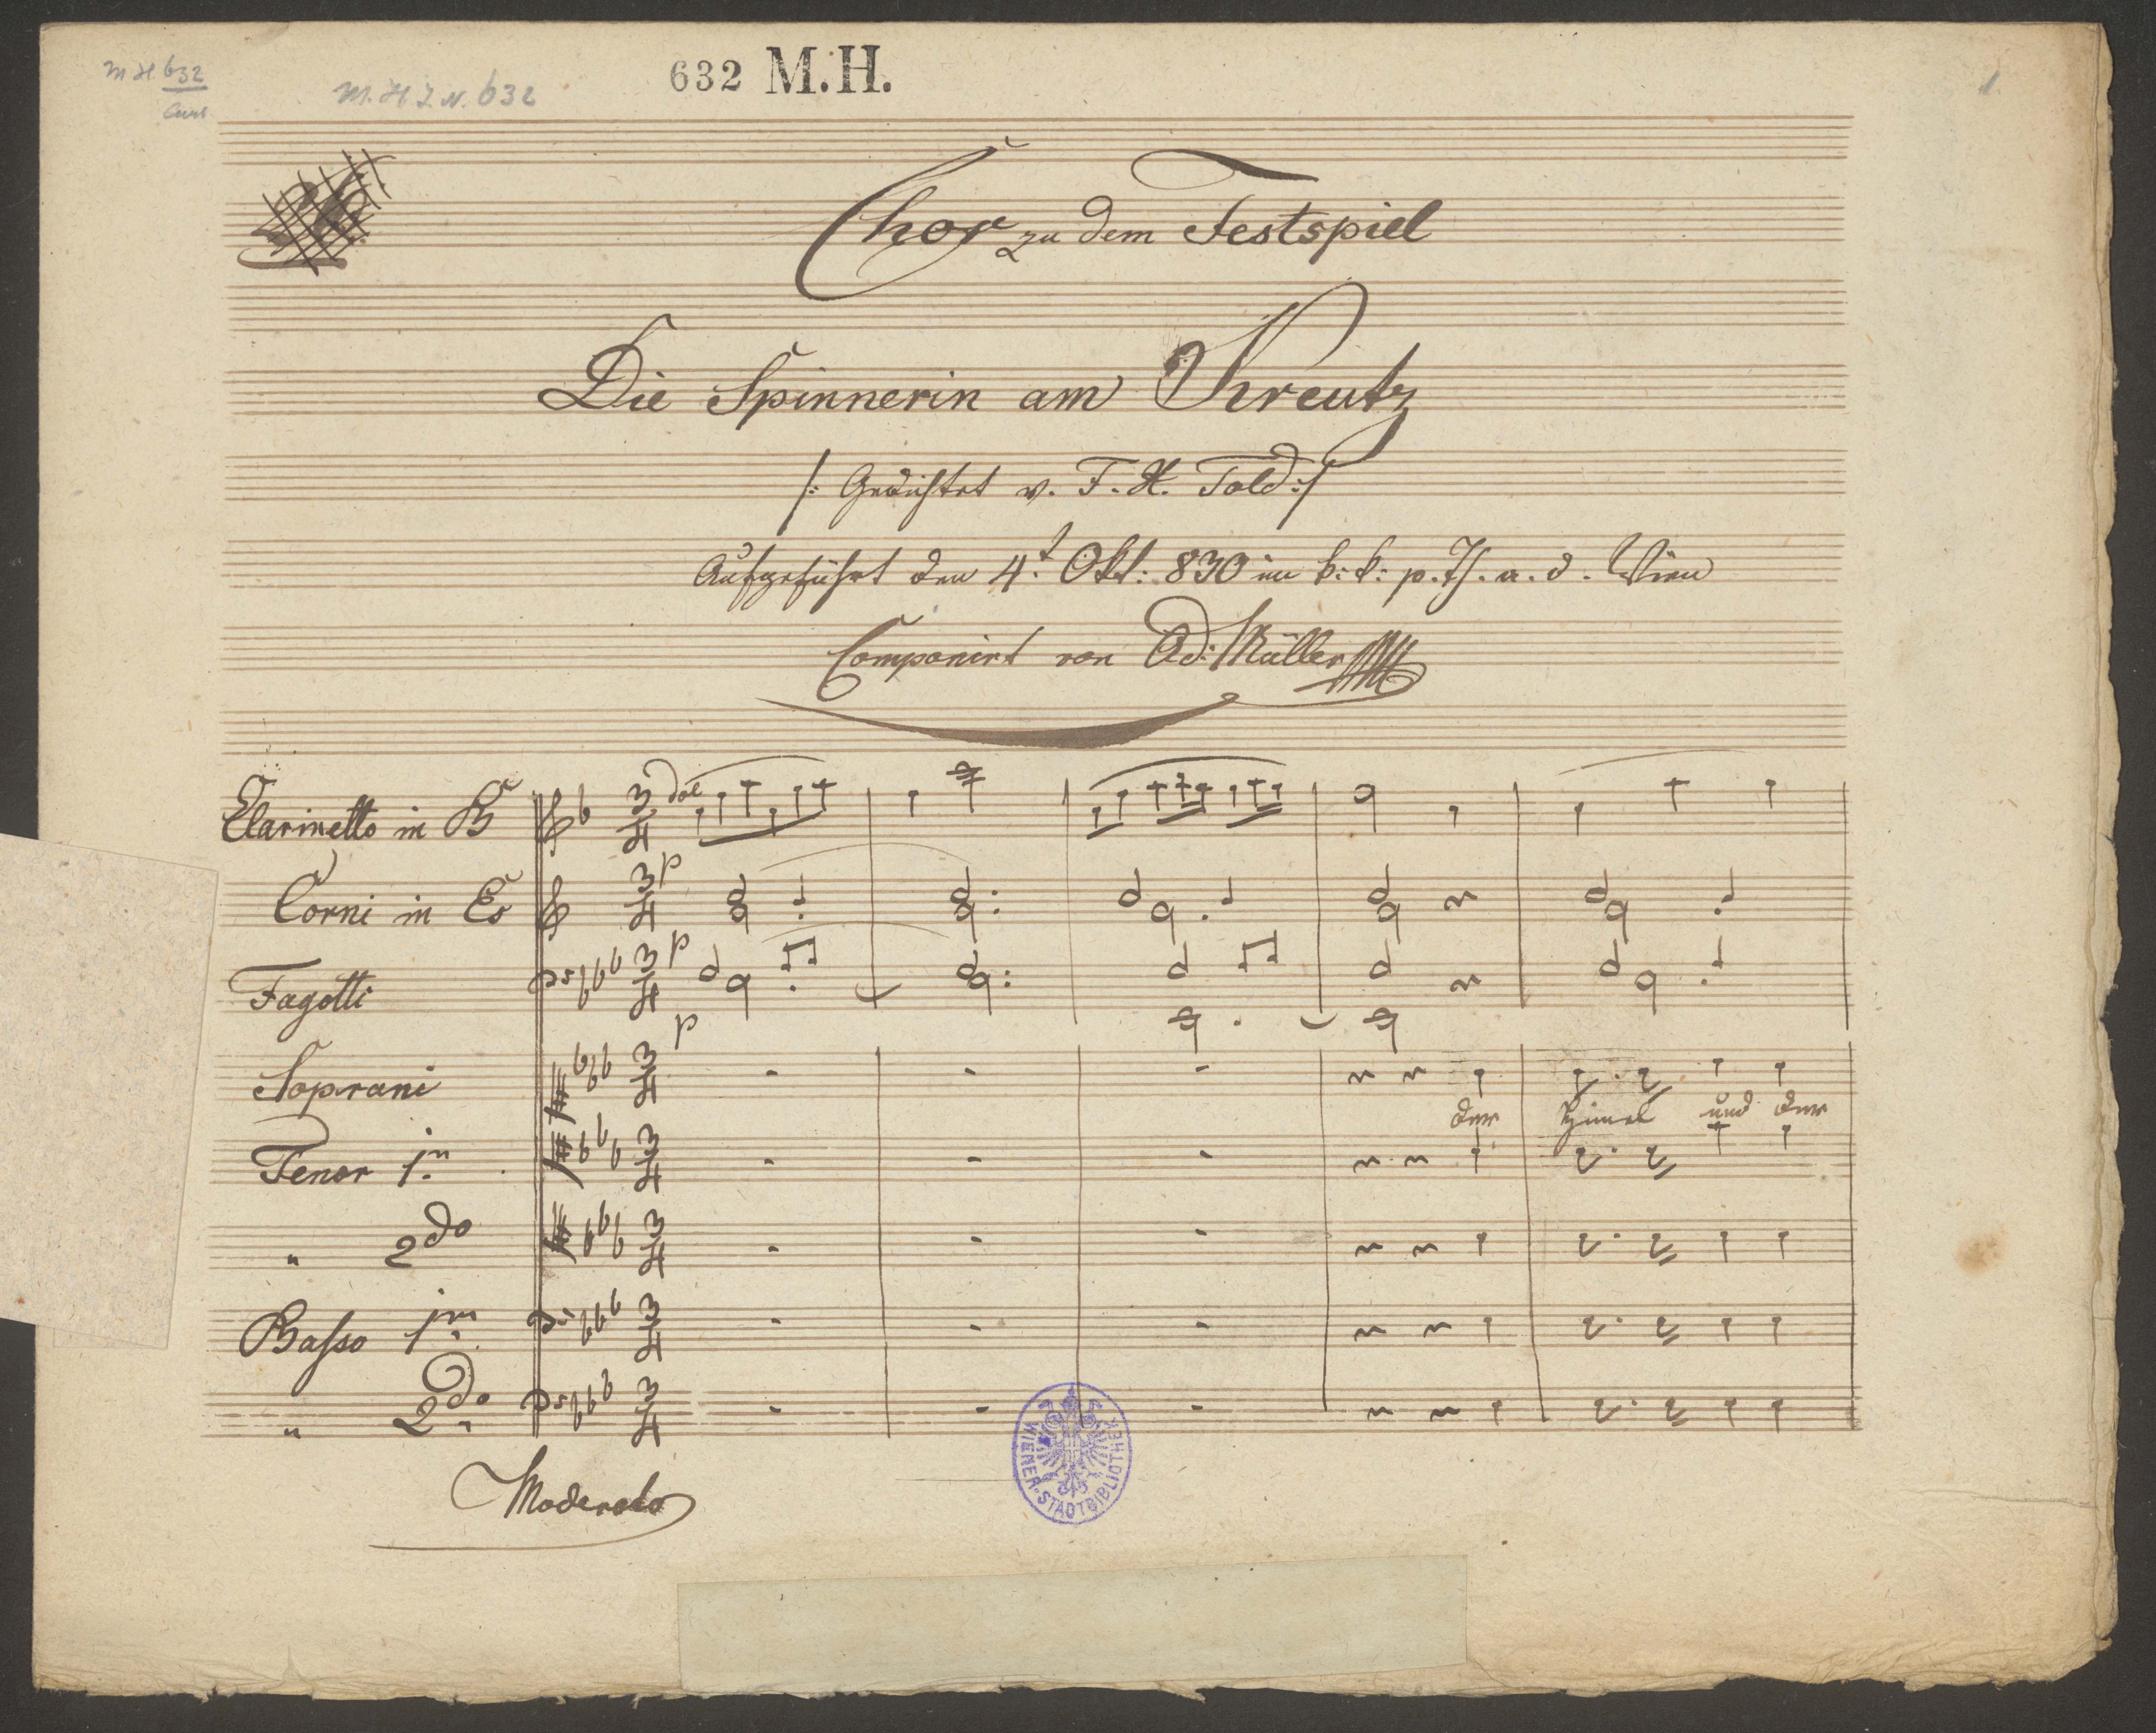 M H 632
M. H. I. N. 632
632 M.H.
1.
Chor zu dem Festspiel
Die Spinnerin am Kreutz
/: Gedichtet v. F. X. Told :/
Aufgeführt den 4.t Okt: 830 im k: k: p. Th. a. d. Wien
Componirt von Ad: Müller
Clarinetto in B
dol
Corni in Es
p
Fagotti
p
p
Soprani
der Himel und der
Tenor 1m
" 2do
Basso 1m
" 2do
Moderato
WIENER-STADTBIBLIOTHEK